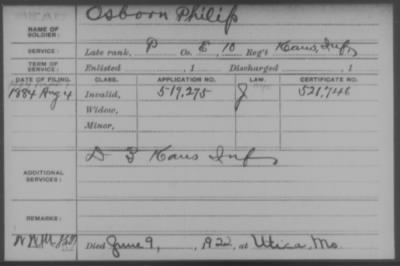 NAME OF SOLDIER: Osborn Philip
SERVICE: Late rank, P Co. E, 10 Reg't Kans, Inf,
TERM OF SERVICE: Enlisted , 1 Discharged , 1
DATE OF FILING. CLASS. APPLICATION NO. LAW. CERTIFICATE NO.
1884 Aug 4 Invalid, 519,275 J 521,746
Widow,
Minor,
ADDITIONAL SERVICES: D 3 Kans Inf,
REMARKS:
Died June 9, , 1922, at Utica, Mo.